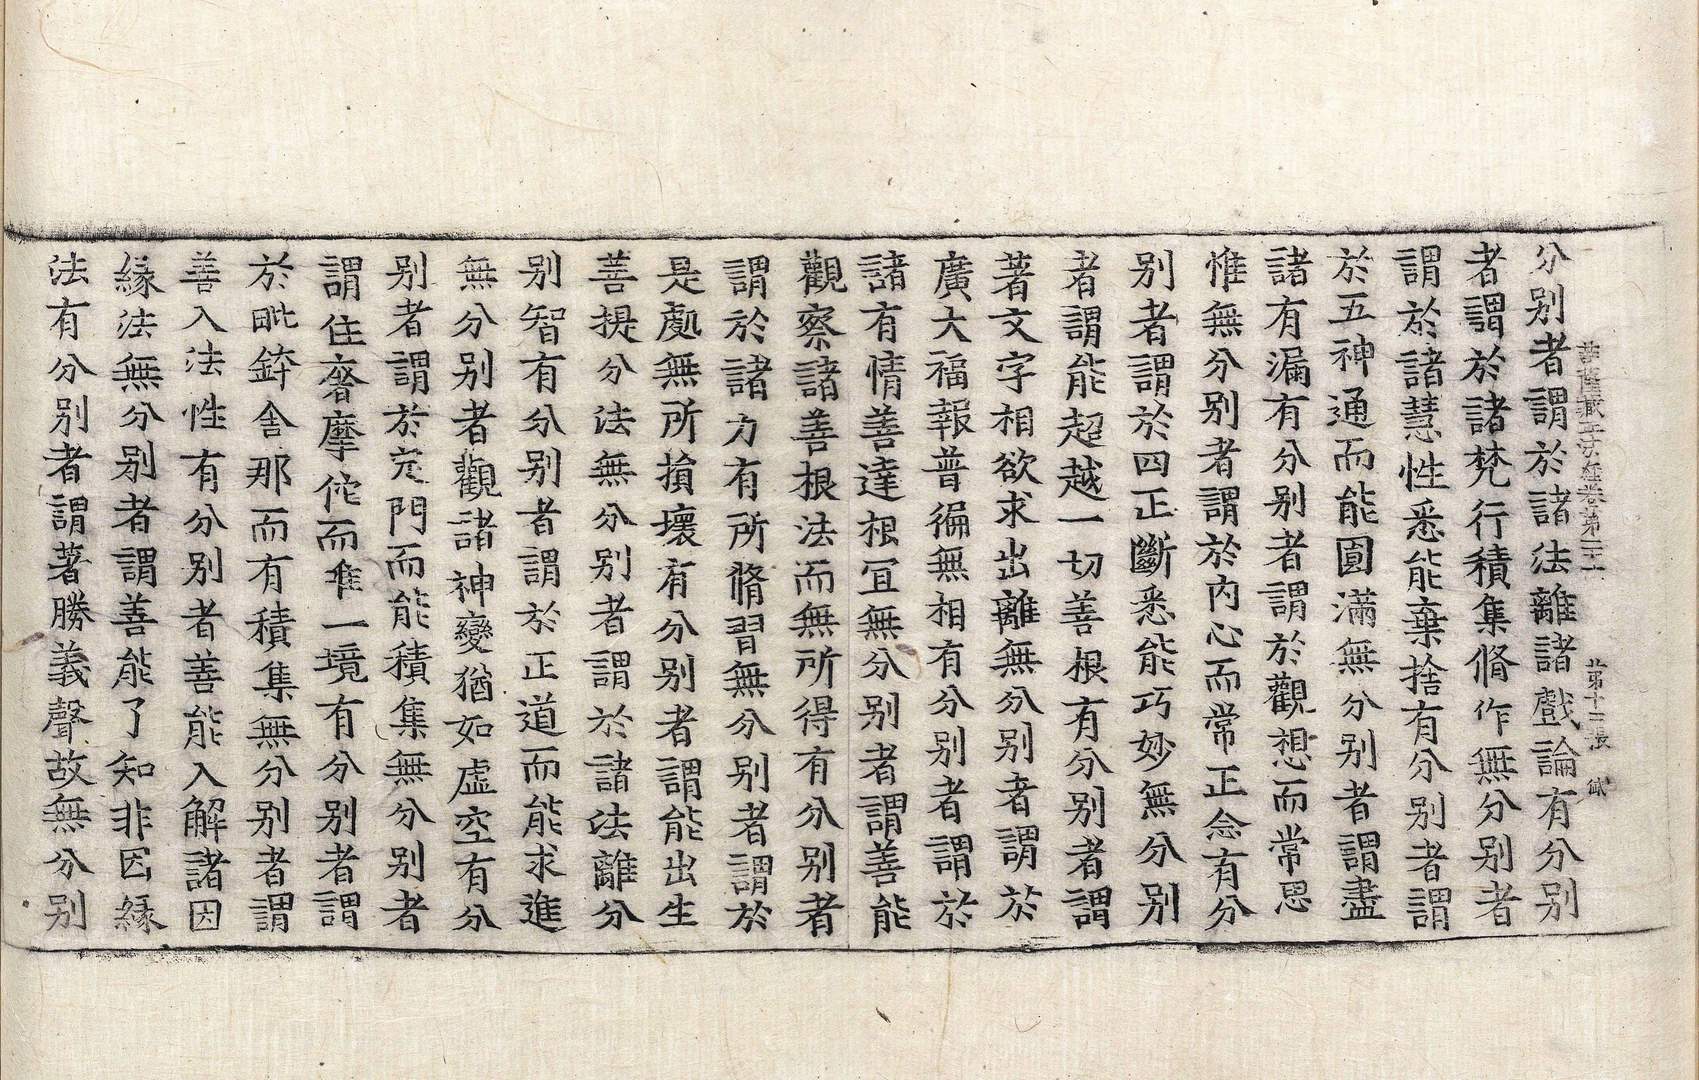 菩薩藏正法經卷第三十一 第十三張 獻
分別者謂於諸法離諸戲論有分別
者謂於諸梵行積集脩作無分別者
謂於諸慧性悉能棄捨有分別者謂
於五神通而能圓滿無分別者謂盡
諸有漏有分別者謂於觀想而常思
惟無分別者謂於內心而常正念有分
別者謂於四正斷悉能巧妙無分別
者謂能超越一切善根有分別者謂
著文字相欲求出離無分別者謂於
廣大福報普徧無相有分別者謂於
諸有情善達根宜無分別者謂善能
觀察諸善根法而無所得有分別者
謂於諸力有所脩習無分別者謂於
是處無所損壞有分別者謂能出生
菩提分法無分別者謂於諸法離分
別智有分別者謂於正道而能求進
無分別者觀諸神變猶如虛空有分
別者謂於定門而能積集無分別者
謂住奢摩佗而唯一境有分別者謂
於毗鉢舍那而有積集無分別者謂
善入法性有分別者善能入解諸因
緣法無分別者謂善能了知非因緣
法有分別者謂著勝義聲故無分別